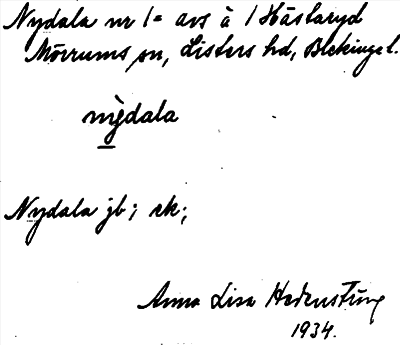 Nydala nr 1= avs å 1 Hästaryd
Mörrums sn, Listers hd, Blekinge l.
nỳdala
Nydala jb; sk;
Anna Lisa Hedenstúng
1934.